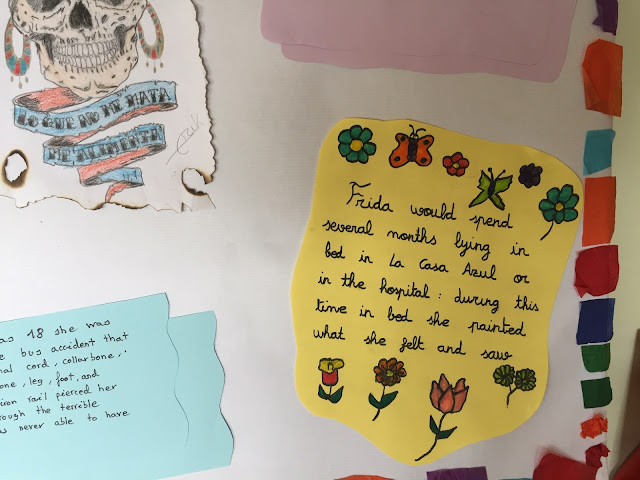 LO QUE NO ME MATA
ME ALIMENTA
Frida would spend
several months lying in
bed in La Casa Azul or
in the hospital: during this
time in bed she painted
what she felt and saw
as 18 she was
bus accident that
cord, collarbone,
leg, foot, and
rail pierced her
the terrible
never able to have